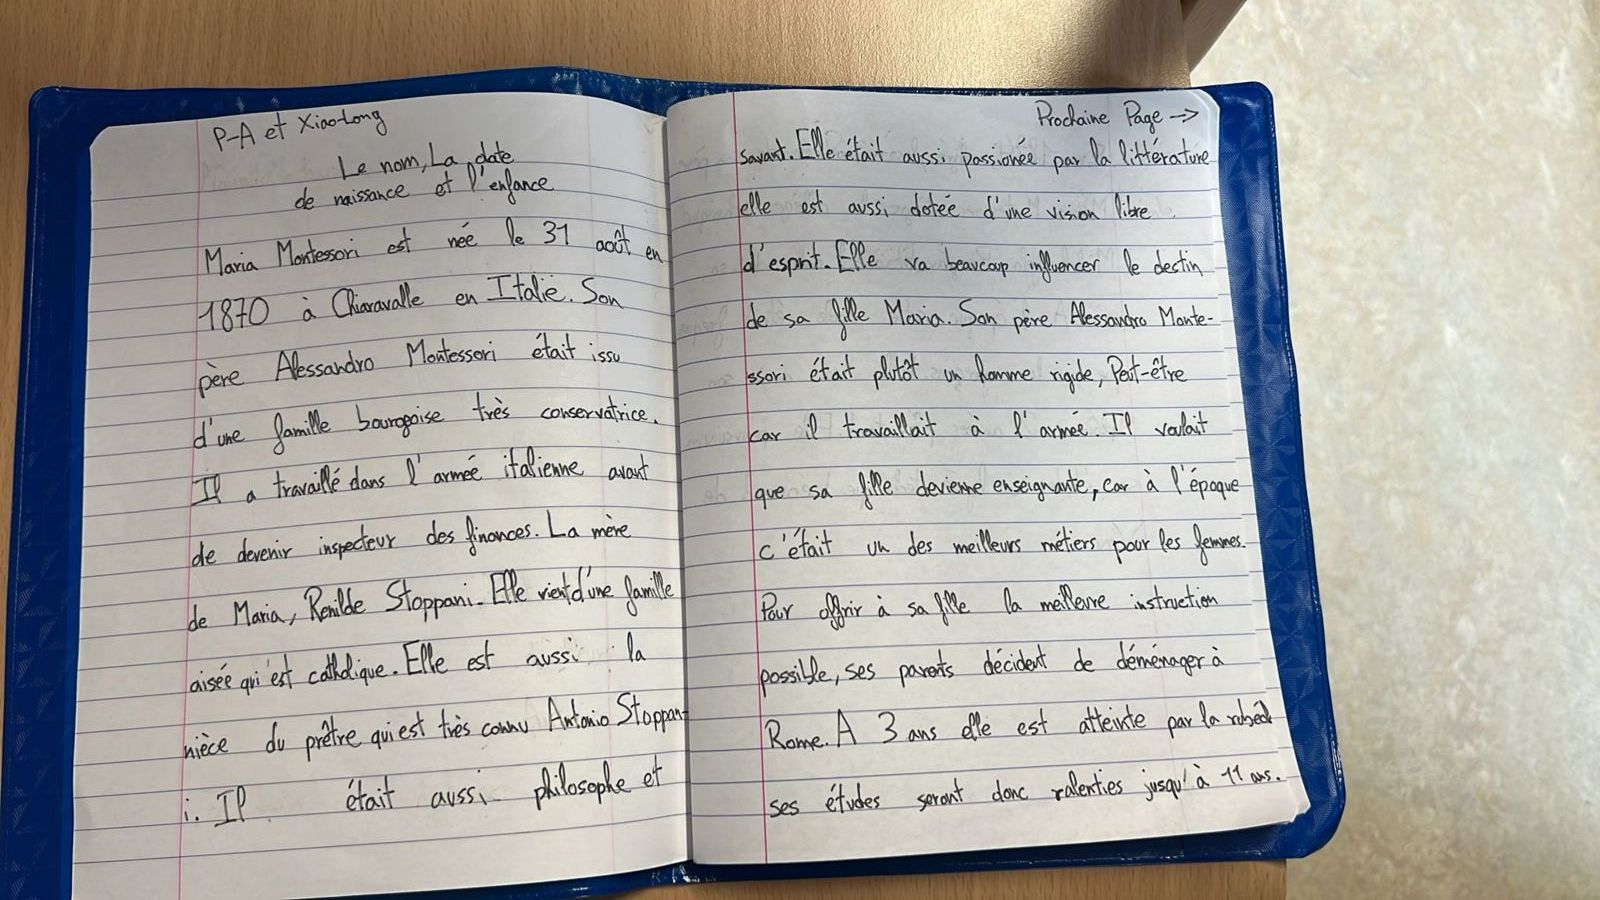 P-A et Xiao-Long
Le nom, La date
de naissance et l'enfance
Maria Montessori est née le 31 août en
1870 à Chiaravalle en Italie. Son
père Alessandro Montessori était issu
d'une famille bourgoise très conservatrice.
Il a travaillé dans l'armée italienne avant
de devenir inspecteur des finances. La mère
de Maria, Renilde Stoppani. Elle vient d'une famille
aisée qui est catholique. Elle est aussi la
nièce du prêtre qui est très connu Antonio Stoppan-
i. Il était aussi philosophe et
Prochaine Page →
savant. Elle était aussi passionée par la littérature
elle est aussi dotée d'une vision libre
d'esprit. Elle va beaucoup influencer le destin
de sa fille Maria. Son père Alessandro Monte-
ssori était plutôt un homme rigide, Peut-être
car il travaillait à l'armée. Il voulait
que sa fille devienne enseignante, car à l'époque
c'était un des meilleurs métiers pour les femmes.
Pour offrir à sa fille la meilleure instruction
possible, ses parents décident de déménager à
Rome. A 3 ans elle est atteinte par la
ses études seront donc ralenties jusqu'à 11 ans.